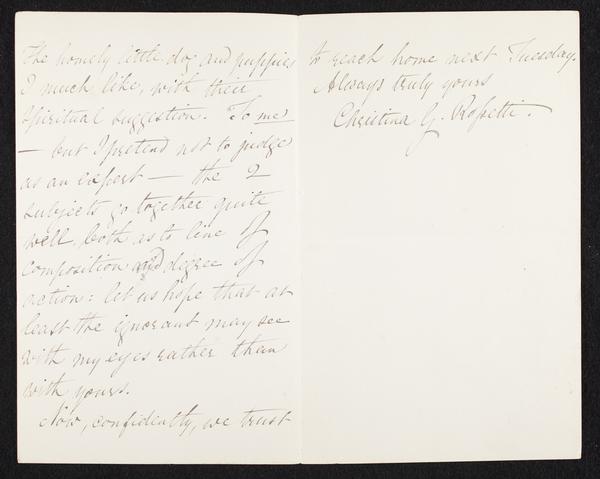 The homely little dog and puppies
I much like, with their
spiritual suggestion. To me
— but I pretend not to judge
as an expert — the 2
subjects go together quite
well, both as to line of
composition and degree of
action: let us hope that at
least the ignorant may see
with my eyes rather than
with yours.
Now, confidently, we trust
to reach home next Tuesday.
Always truly yours
Christina G. Rossetti.